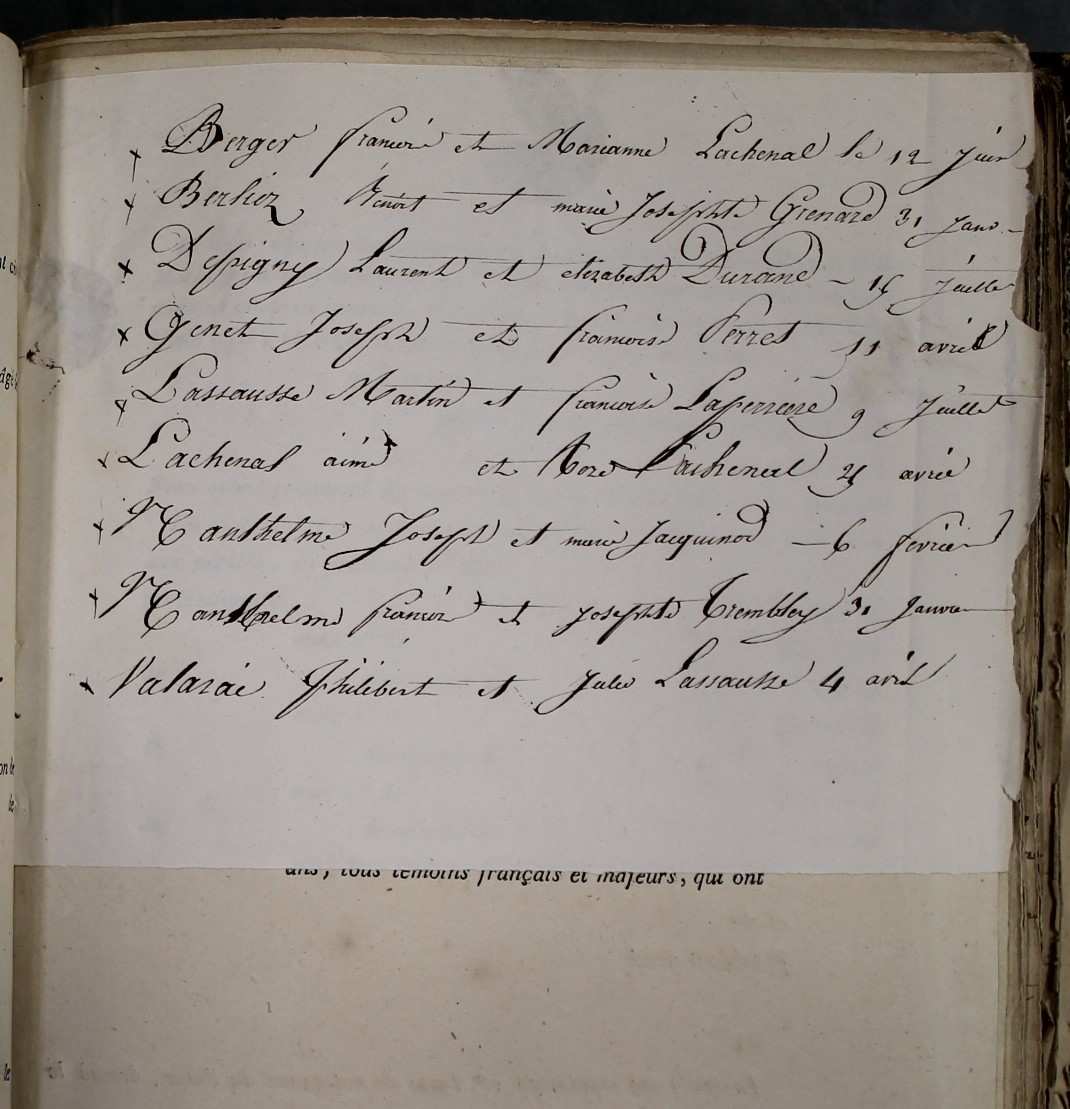 Berger francois et Marianne Lachenal le 12 juin
Berlioz Benoit et marie Josephte Grenard 31 janv.
Depigny Laurent et elizabeth Durand – 15 juillet
Genet Joseph et francoise Perret 11 avril
Lassausse Martin et francoise Laperriere 9 juillet
Lachenal aimé et Roze Lachenal 25 avril
Manthelme Joseph et marie Jacquinod – 6 fevrier
Manthelme francois et josephte Trembley 31 janvier
Valaraie philibert et Julie Lassausse 4 avril
ans, tous témoins français et majeurs, qui ont